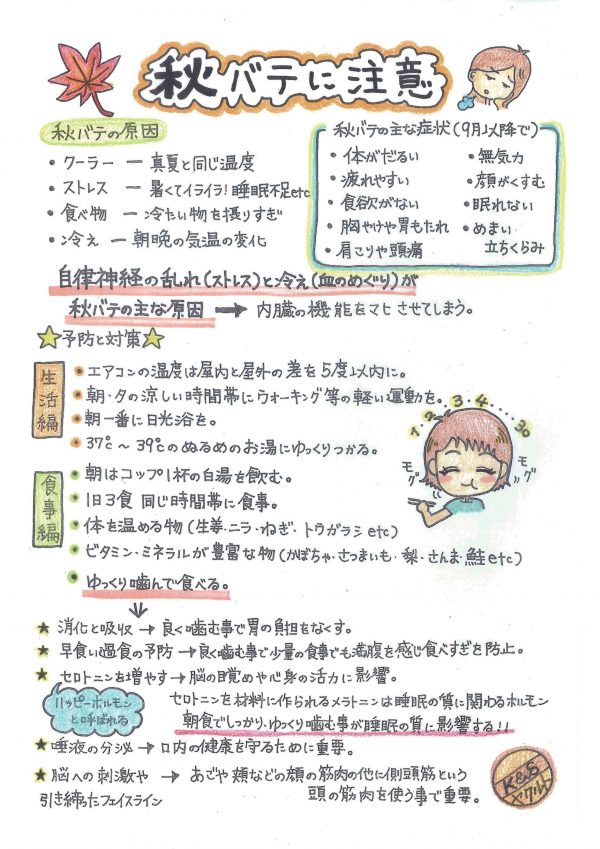 秋バテに注意
秋バテの原因
• クーラー ー 真夏と同じ温度
• ストレス ー 暑くてイライラ!睡眠不足etc
• 食べ物 ー 冷たい物を摂りすぎ
• 冷え ー 朝晩の気温の変化
秋バテの主な症状(9月以降で)
• 体がだるい
• 疲れやすい
• 食欲がない
• 胸やけや胃もたれ
• 肩こりや頭痛
• 無気力
• 顔がくすむ
• 眠れない
• めまい
立ちくらみ
自律神経の乱れ(ストレス)と冷え(血のめぐり)が
秋バテの主な原因 → 内臓の機能をマヒさせてしまう。
☆予防と対策☆
生活編
• エアコンの温度は屋内と屋外の差を5度以内に。
• 朝・夕の涼しい時間帯にウォーキング等の軽い運動を。
• 朝一番に日光浴を。
• 37℃~39℃のぬるめのお湯にゆっくりつかる。
1・2・3・4・・・・・30
モグ
モグ
食事編
• 朝はコップ1杯の白湯を飲む。
• 1日3食 同じ時間帯に食事。
• 体を温める物(生姜・ニラ・ねぎ・トウガラシetc)
• ビタミン・ミネラルが豊富な物(かぼちゃ・さつまいも・梨・さんま・鮭etc)
• ゆっくり噛んで食べる。
↓
★ 消化と吸収 → 良く噛む事で胃の負担をなくす。
★ 早食い過食の予防 → 良く噛む事で少量の食事でも満腹を感じ食べすぎを防止。
★ セロトニンを増やす → 脳の目覚めや心身の活力に影響。
ハッピーホルモン
と呼ばれる
セロトニンを材料に作られるメラトニンは睡眠の質に関わるホルモン
朝食でしっかり、ゆっくり噛む事が睡眠の質に影響する!!
★ 唾液の分泌 → 口内の健康を守るために重要。
★ 脳への刺激や → あごや頬などの顔の筋肉の他に側頭筋という
引き締ったフェイスライン 頭の筋肉を使う事で重要。
K&S